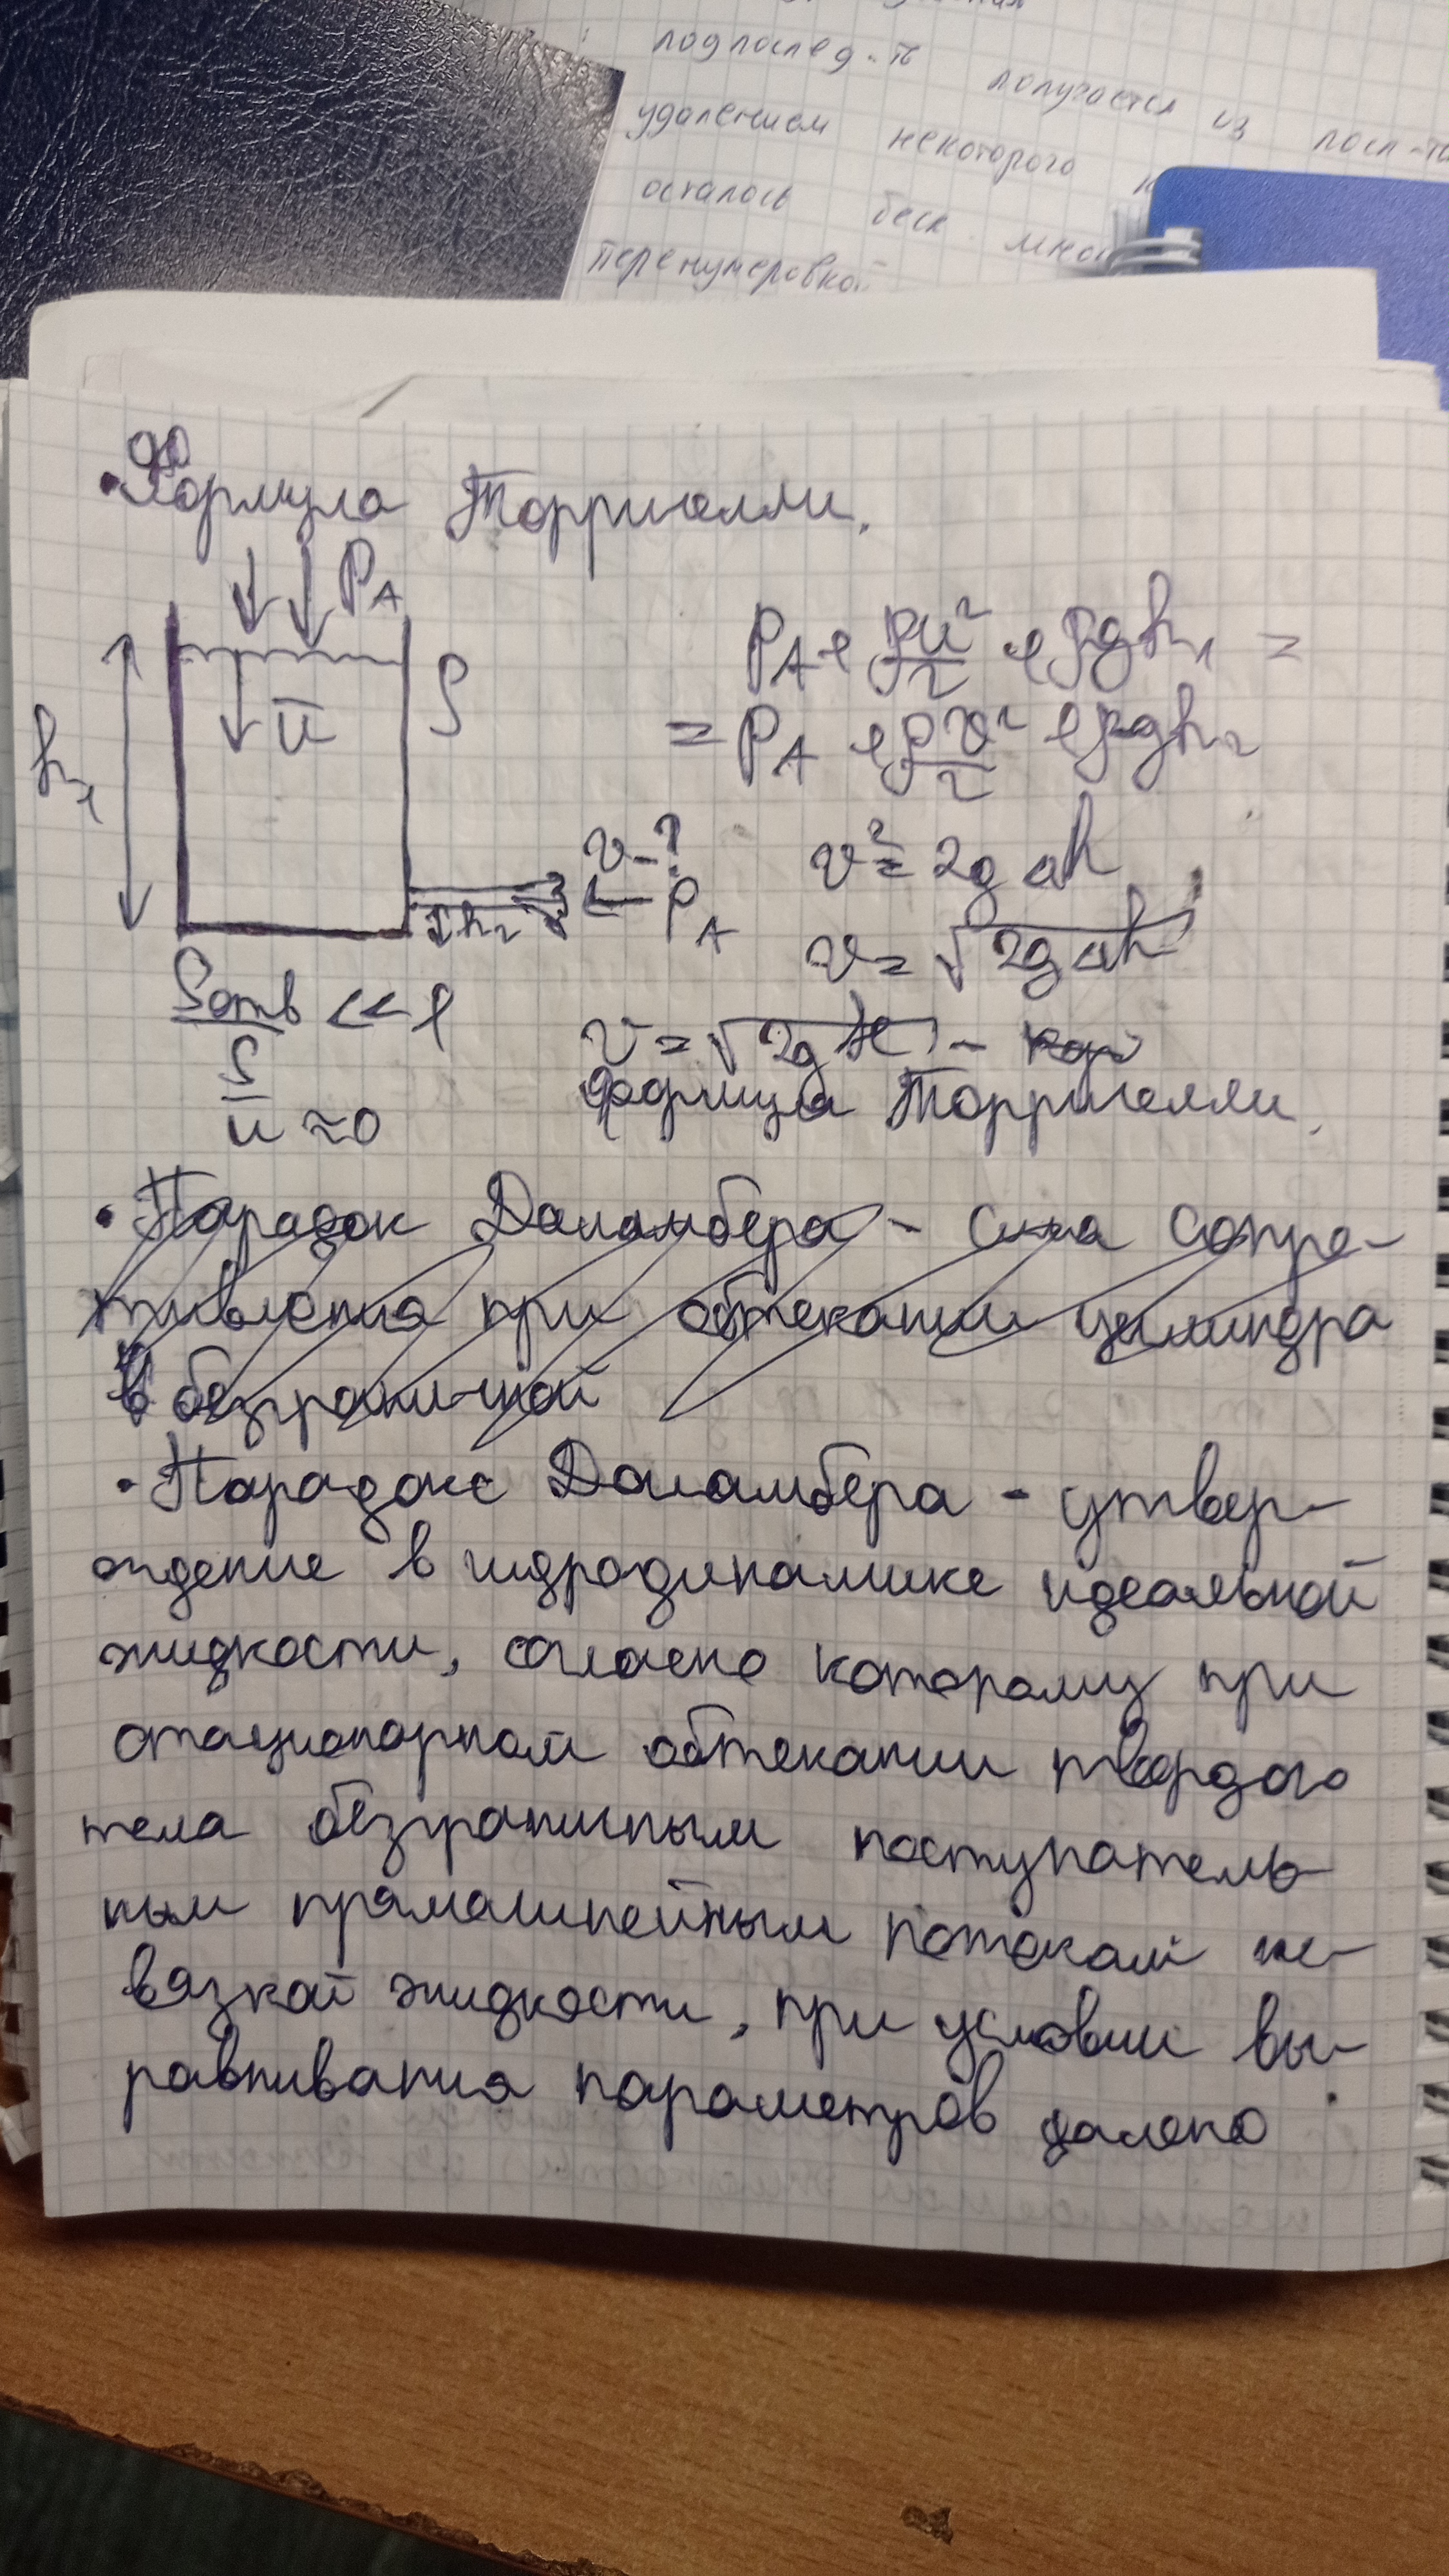 подпослед-ть получается из посл-ти
удалением некоторого
осталось беск. мно
перенумеровкой
• Формула Торричелли.
P_A
h₁
ū
ρ
P_A + ρu²/2 + ρgh₁ =
= P_A + ρv²/2 + ρgh₂
v - ?
P_A
h₂
v² = 2gΔh
v = √2gΔh
Sотв/S << 1
u ≈ 0
v = √2gH -
формула Торричелли.
• Парадок Даламбера - сила сопро-
тивления при обтекании цилиндра
в безграничной
• Парадокс Даламбера - утвер-
ждение в гидродинамике идеальной
жидкости, согласно которому при
стационарном обтекании твердого
тела безграничным поступатель-
ным прямолинейным потоком не-
вязкой жидкости, при условии вы-
равнивания параметров далеко